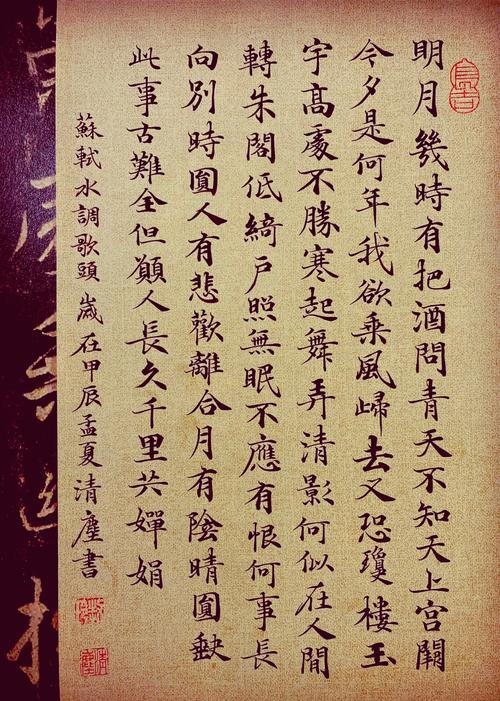 明月幾時有把酒問青天不知天上宮闕
今夕是何年我欲乘風歸去又恐瓊樓玉
宇髙處不勝寒起舞弄清影何似在人間
轉朱閣低綺戶照無眠不應有恨何事長
向別時圓人有悲歡離合月有陰晴圓缺
此事古難全但願人長久千里共嬋娟
蘇軾水調歌頭 歲在甲辰孟夏清塵書
清塵